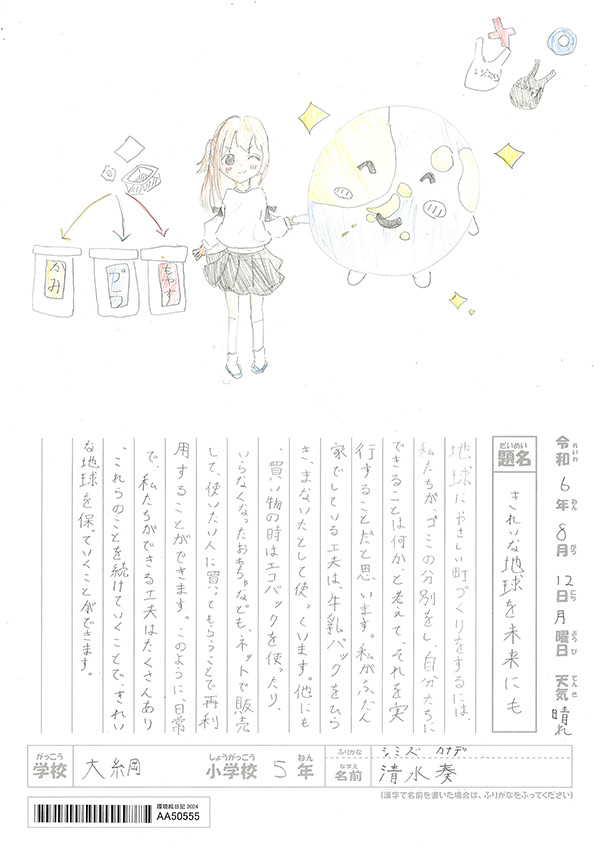 レジぶくろ
かみ
プラ
もやす
令和6年8月12日月曜日 天気晴れ
れいわ ねん がつ にち ようび てんき
だいめい
題名 きれいな地球を未来にも
地球にやさしい町づくりをするには、
私たちが、ゴミの分別をし、自分たちに
できることは何かと考えて、それを実
行することだと思います。私がふだん
家でしている工夫は、牛乳パックをひら
き、まないたとして使っています。他にも
、買い物の時はエコバックを使ったり、
いらなくなったおもちゃなども、ネットで販売
して、使いたい人に買ってもらうことで再利
用することができます。このように、日常
で、私たちができる工夫はたくさんあり
、これらのことを続けていくことで、きれい
な地球を保っていくことができます。
がっこう しょうがっこう ねん
学校 大綱 小学校 5年
ふりがな シミズ カナデ
なまえ
名前 清水奏
(漢字で名前を書いた場合は、ふりがなをふってください)
環境絵日記 2024
AA50555